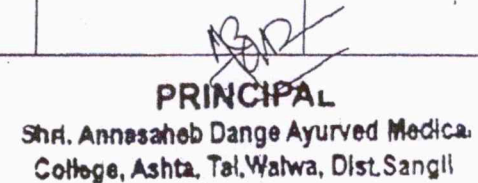 PRINCIPAL
Shri. Annasaheb Dange Ayurved Medical
College, Ashta, Tal.Walwa, Dist.Sangli